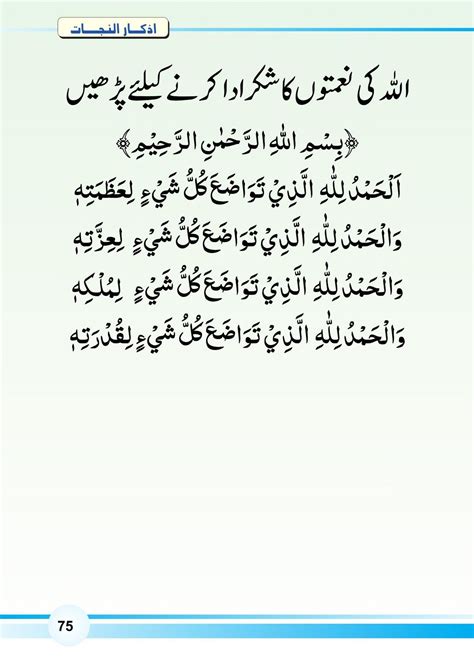 اذکار النجات
اللہ کی نعمتوں کا شکر ادا کرنے کیلئے پڑھیں
﴿بِسْمِ اللهِ الرَّحْمٰنِ الرَّحِيْمِ﴾
اَلْحَمْدُ لِلّٰهِ الَّذِيْ تَوَاضَعَ كُلُّ شَيْءٍ لِعَظَمَتِهٖ
وَالْحَمْدُ لِلّٰهِ الَّذِيْ تَوَاضَعَ كُلُّ شَيْءٍ لِعِزَّتِهٖ
وَالْحَمْدُ لِلّٰهِ الَّذِيْ تَوَاضَعَ كُلُّ شَيْءٍ لِمُلْكِهٖ
وَالْحَمْدُ لِلّٰهِ الَّذِيْ تَوَاضَعَ كُلُّ شَيْءٍ لِقُدْرَتِهٖ
75